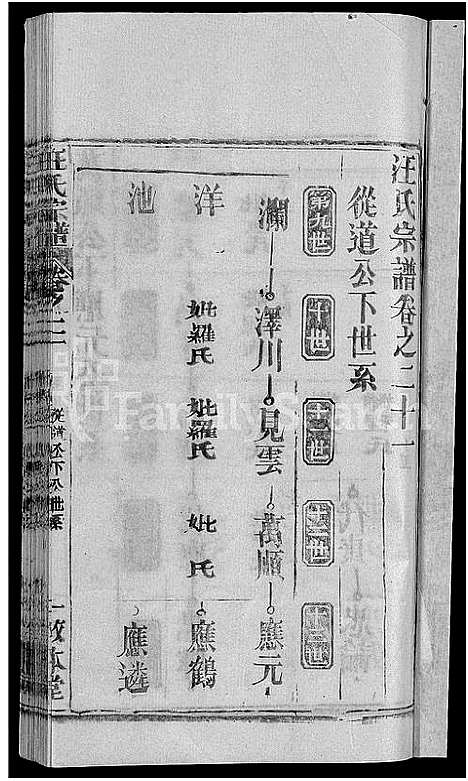 汪氏宗譜卷之二十一
從道公下世系
第九世 十世 十一世 十二世 十三世
瀾 澤川 見雲 萬順 應元
洋 妣羅氏 妣羅氏 妣 氏 應鶴
池 應遴
汪氏宗譜 卷之二十一 從道公下世系 一 敦本堂
FamilySearch